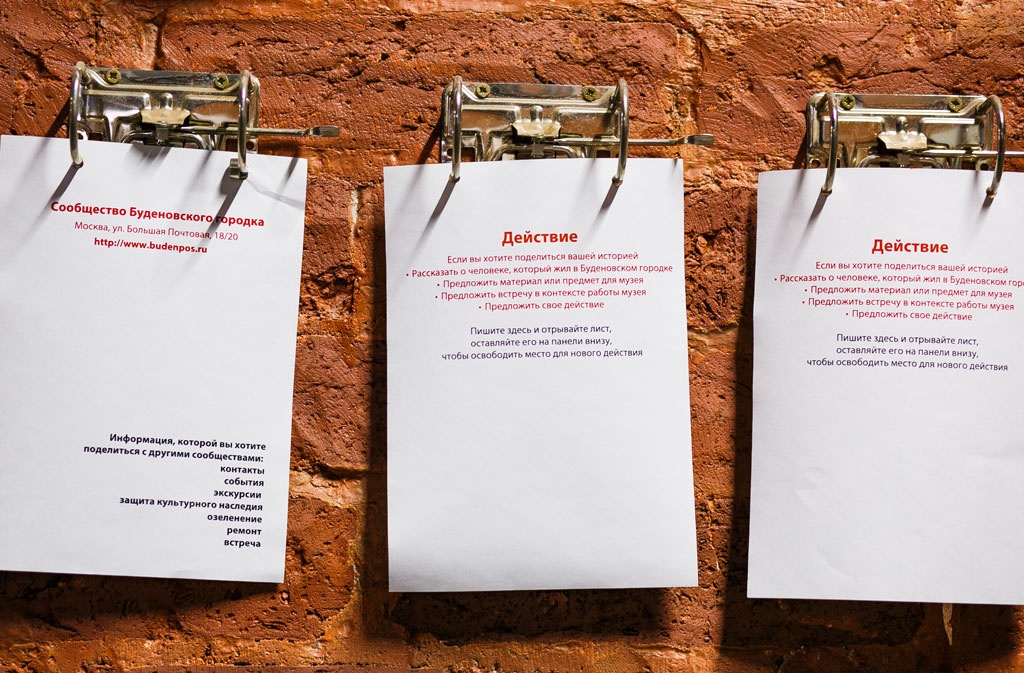 Сообщество Буденовского городка
Москва, ул. Большая Почтовая, 18/20
http://www.budenpos.ru
Информация, которой вы хотите
поделиться с другими сообществами:
контакты
события
экскурсии
защита культурного наследия
озеленение
ремонт
встреча
Действие
Если вы хотите поделиться вашей историей
• Рассказать о человеке, который жил в Буденовском городке
• Предложить материал или предмет для музея
• Предложить встречу в контексте работы музея
• Предложить свое действие
Пишите здесь и отрывайте лист,
оставляйте его на панели внизу,
чтобы освободить место для нового действия
Действие
Если вы хотите поделиться вашей историей
• Рассказать о человеке, который жил в Буденовском горо
• Предложить материал или предмет для музея
• Предложить встречу в контексте работы музея
• Предложить свое действие
Пишите здесь и отрывайте лист,
оставляйте его на панели внизу,
чтобы освободить место для нового действия